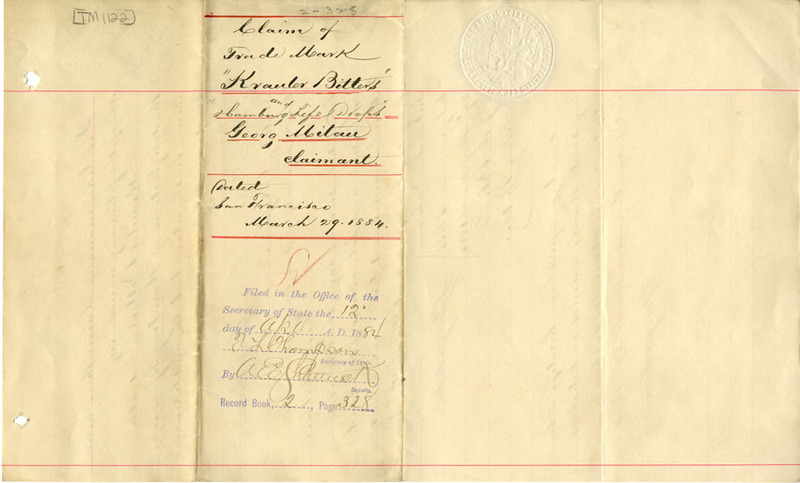 [TM1122]
2-328
Claim of
Trade Mark
"Krauter Bitters"
and
"Hamburg Life Drops"
Georg Mitau
claimant.
Dated
San Francisco
March 29. 1884.
Filed in the Office of the
Secretary of State the 12
day of Apl A. D. 1884
Thompson
Secretary of State.
By A. E.
Deputy.
Record Book, 2, Page 328